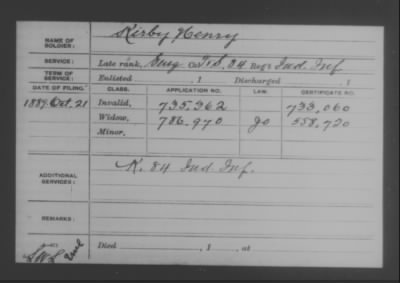 Kirby Henry
NAME OF SOLDIER:
SERVICE: Late rank, Co. 84 Reg't Ind. Inf.
TERM OF SERVICE: Enlisted , 1 Discharged , 1
DATE OF FILING. CLASS. APPLICATION NO. LAW. CERTIFICATE NO.
1889 Oct. 21 Invalid, 735.362 733.060
Widow, 786.970 558.720
Minor,
ADDITIONAL SERVICES: K. 84 Ind. Inf.
REMARKS:
Died , 1 , at